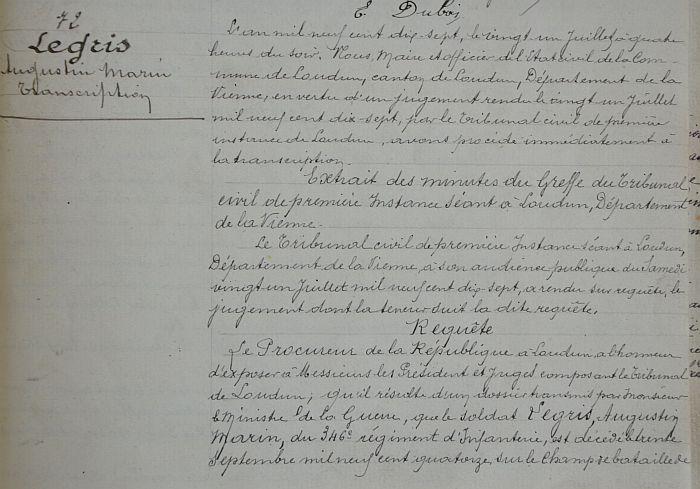 72
Legris
Augustin Marin
Transcription
E. Dubois
L'an mil neuf cent dix-sept, le vingt un Juillet, à quatre
heures du soir. Nous, Maire et officier de l'Etat civil de la Com-
mune de Loudun, canton de Loudun, Département de la
Vienne, en vertu d'un jugement rendu le vingt un Juillet
mil neuf cent dix-sept, par le Tribunal civil de première
instance de Loudun, avons procédé immédiatement à
la transcription.
Extrait des minutes du Greffe du Tribunal
civil de première Instance séant à Loudun, Département
de la Vienne.
Le Tribunal civil de première Instance séant à Loudun,
Département de la Vienne, à son audience publique du Samedi
vingt un Juillet mil neuf cent dix-sept, a rendu sur requête, le
jugement dont la teneur suit la dite requête.
Requête
Le Procureur de la République à Loudun, a l'honneur
d'exposer à Messieurs les Président et Juges composant le Tribunal
de Loudun; qu'il résulte d'un dossier transmis par Monsieur
le Ministre de la Guerre, que le soldat Legris, Augustin
Marin, du 346e régiment d'Infanterie, est décédé le trente
Septembre mil neuf cent quatorze, sur le champ de bataille de